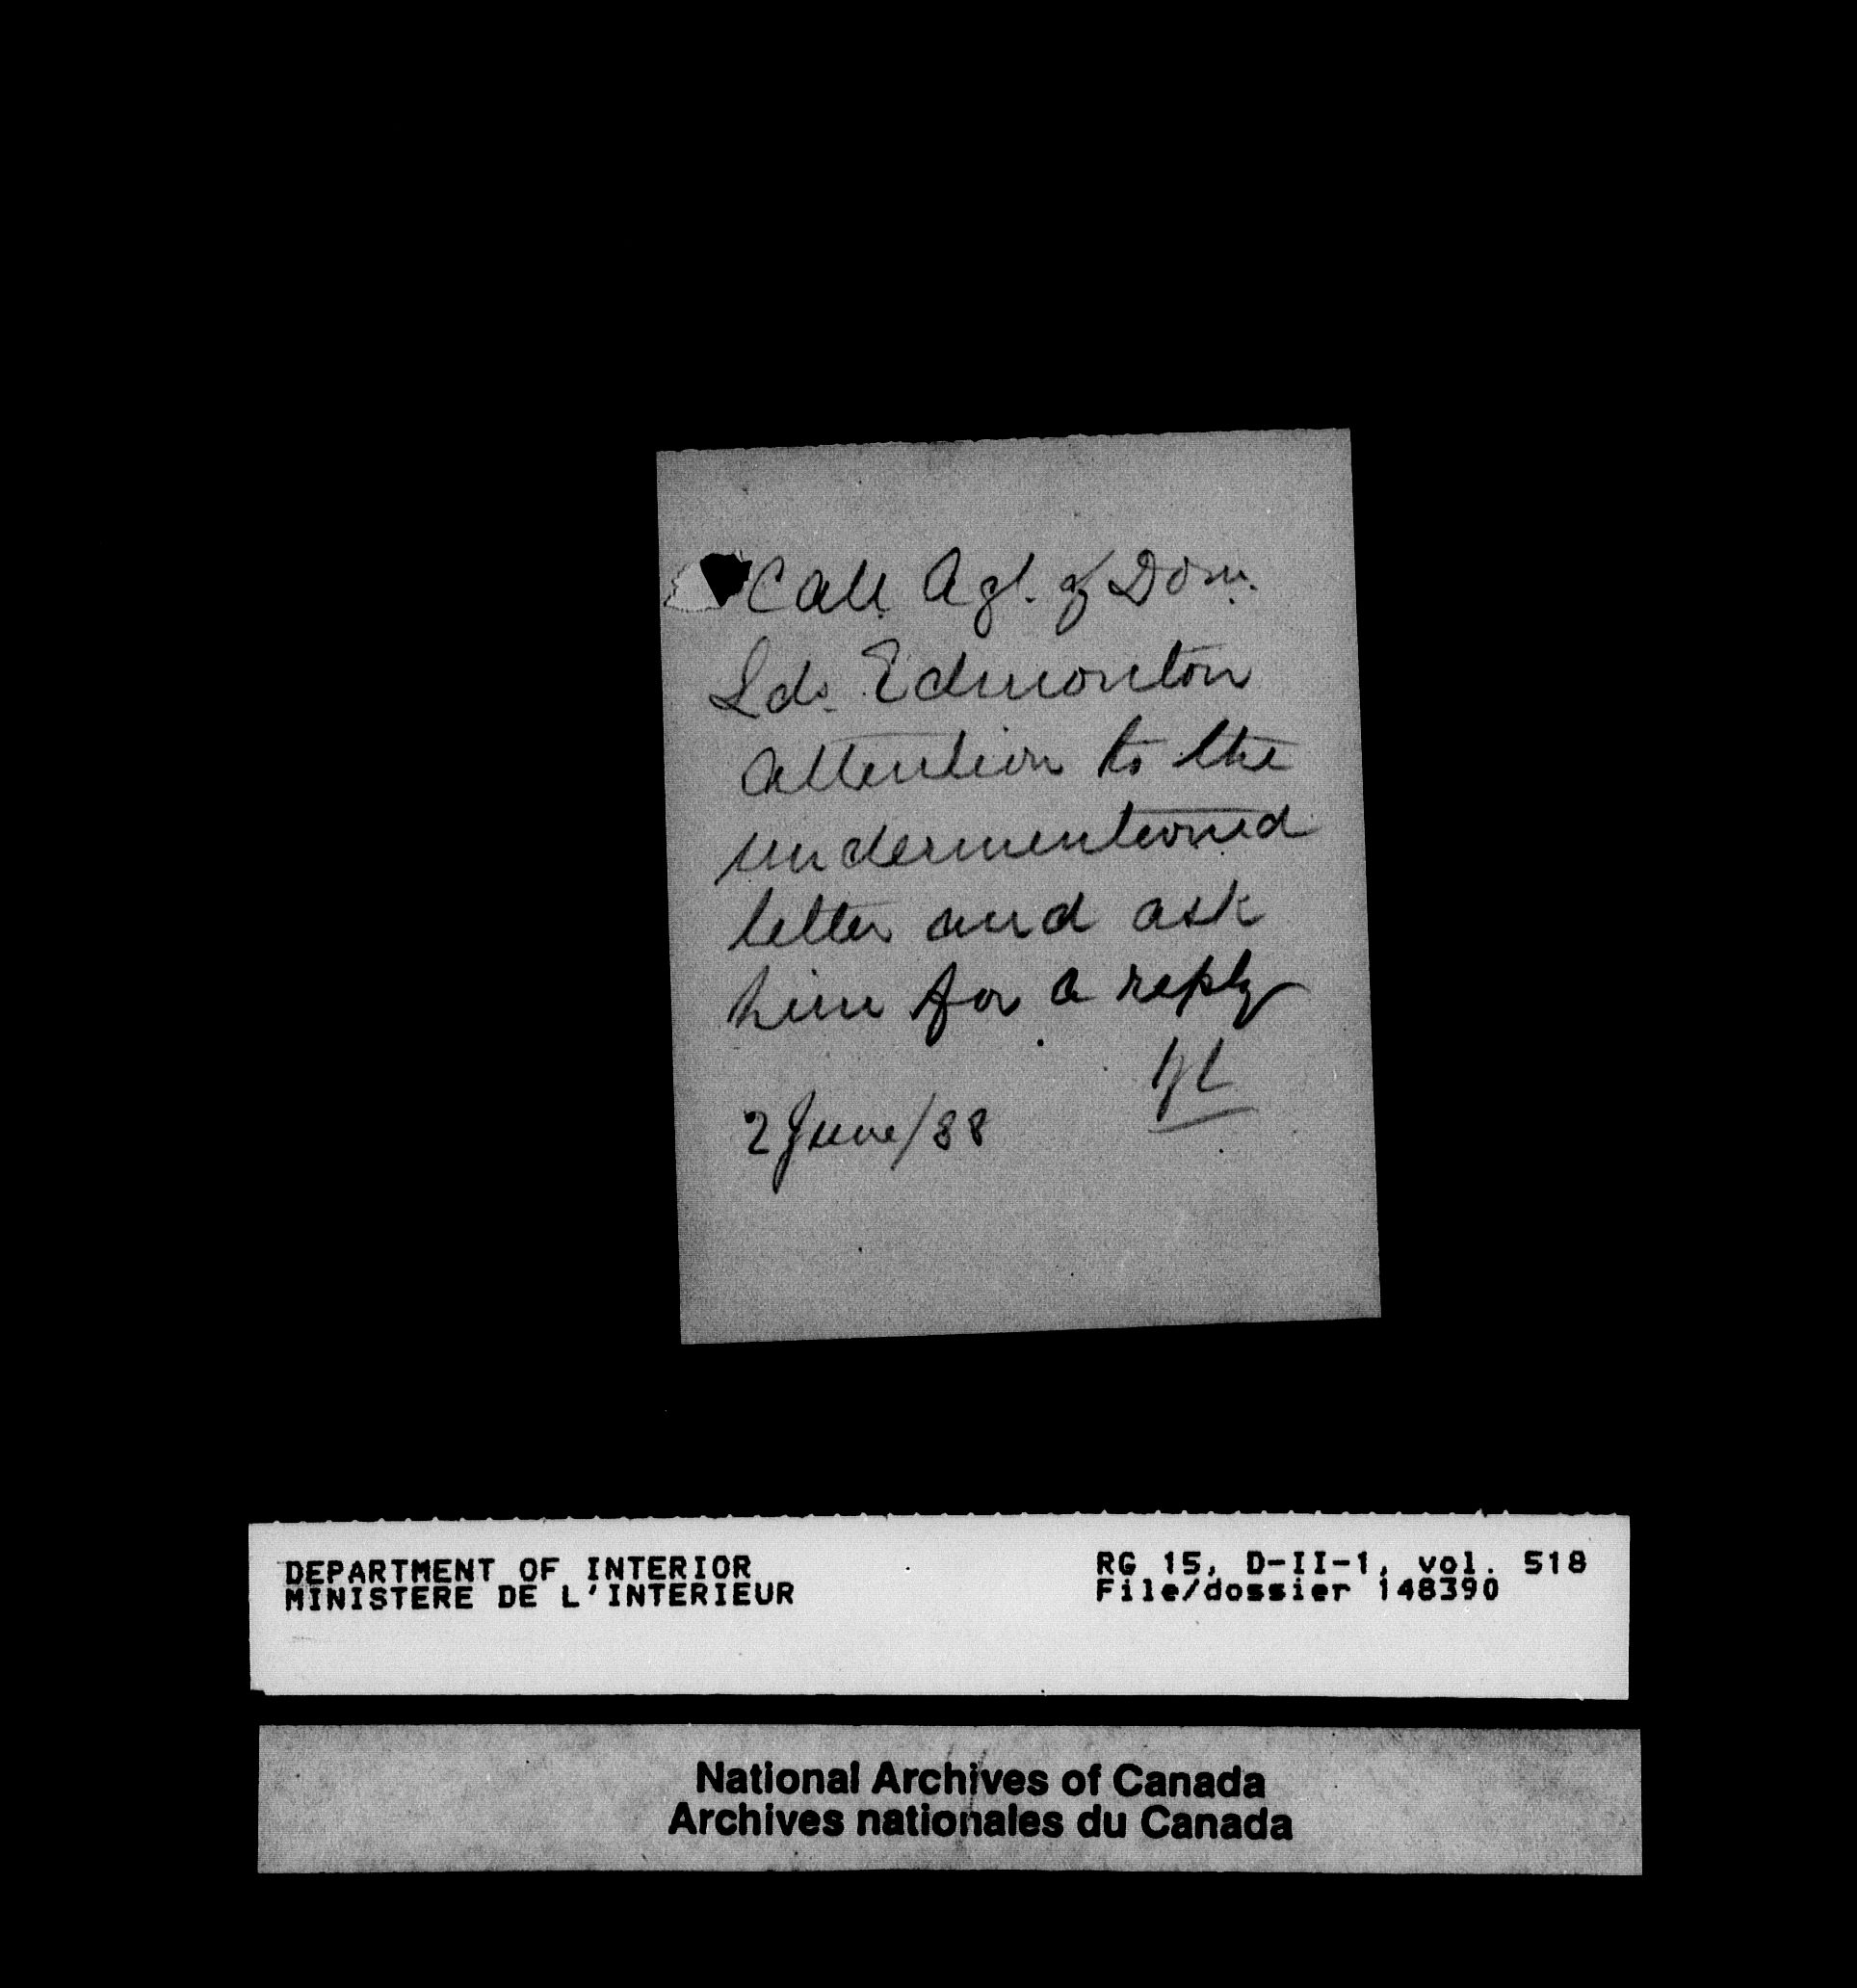 Call Agt. of Dom.
Lds. Edmonton
attention to the
undermentioned
letter and ask
him for a reply
2 June/88
DEPARTMENT OF INTERIOR
MINISTERE DE L'INTERIEUR
RG 15, D-II-1, vol. 518
File/dossier 148390
National Archives of Canada
Archives nationales du Canada